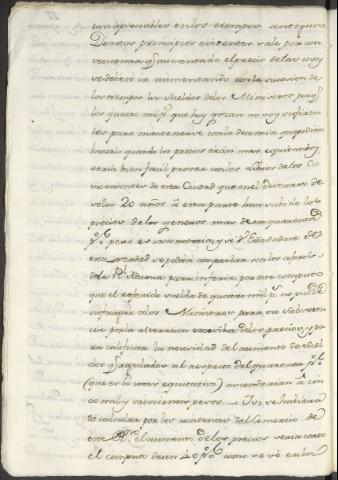 tan apreciables en los tiempos antiguos
De otros principios evidentes vale por con
sequencia q̃ aumentado el precio de las cosas
se deben ir aumentando con la sucesion de
los tiempos los Sueldos de los Ministros pues q̃
los quatro mil p.s que hoy gozan no son suficien
tes para mantenerse con la decencia que podian
hacerlo quando los precios eran mas equitativos
seria bien facil provar con los Libros de los Co
merciantes de esta Ciudad que en el discurso de
solos 20 años à esta parte han subido los
precios de los generos mas de un quarenta
p% pero es cosa notoria, y si V. Exa dudare de
esta verdad se podrá comprobar con los aforos
de la R.l Aduana para inferir por este computo
que el referido sueldo de quatro mil p.s no puede
sufragar a los Ministros para su subsisten
cia por la alteracion excesiva de los precios, y pa
ra calificar la necesidad del aumento de suel
dos q̃ regulados al respecto del quarenta p%
(que es lo mas equitativo) ascenderian à cin
co mil y seiscientos pesos. Y si se hubiera
de calcular por los quadernos del Comercio de
este R.no el aumento de los precios seria corto
el computo de un 40 p% como se ve en los